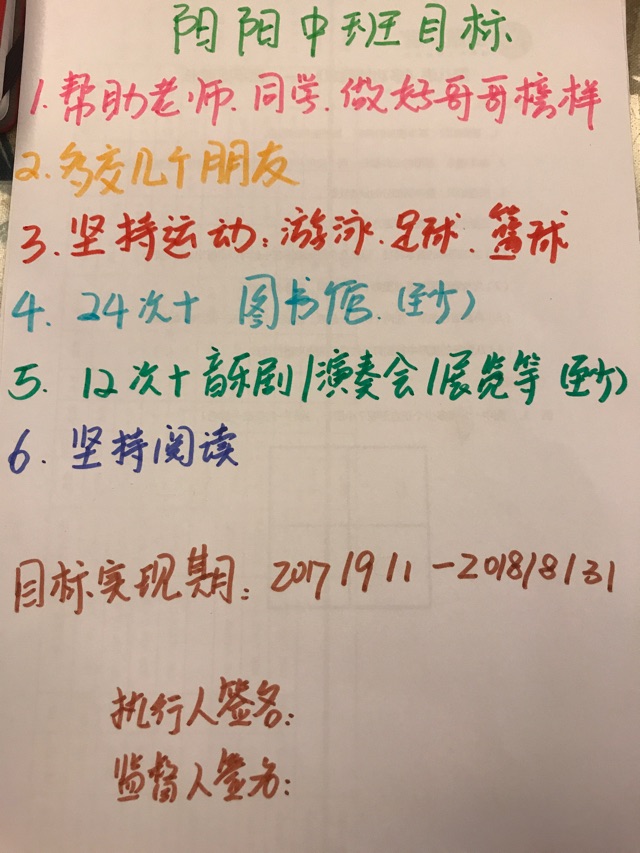 阳阳中班目标
1.帮助老师、同学,做好哥哥榜样
2.多交几个朋友
3.坚持运动:游泳、足球、篮球
4.24次+ 图书馆.(至少)
5.12次+音乐剧/演奏会/展览等(至少)
6.坚持阅读
目标实现期:2017/9/1-2018/8/31
执行人签名:
监督人签名: